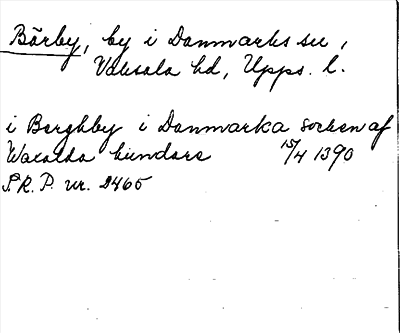 Bärby, by i Danmarks sn,
Vaksala hd, Upps. l.
i Berghby i Danmarka socken af
Wacalda hundare 15/4 1390
S.R.P. nr. 2465